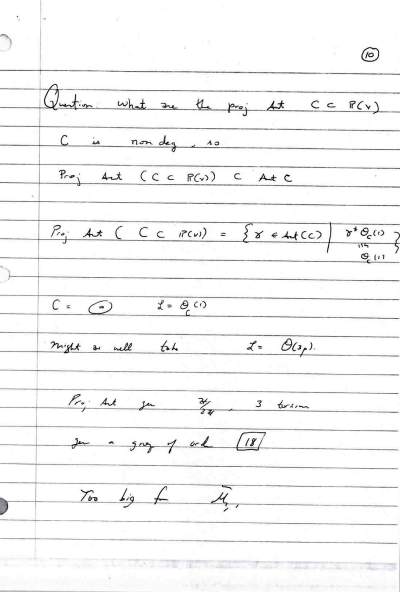 10
Question. What are the proj Aut C ⊂ P(V)
C is non deg, so
Proj Aut (C ⊂ P(V)) ⊂ Aut C
Proj Aut ( C ⊂ P(V)) = { γ ∈ Aut(C) | γ* O_C(1) ≅ O_C(1) }
C = L = O_C(1)
Might as well take L = O(3p).
Proj Aut gen Z/2Z, 3 torsion
gen a group of ord 18
Too big for